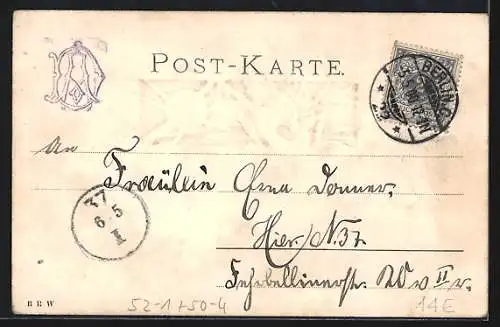 POST-KARTE.
BERLIN, C.
An
Fräulein Erna Donner,
Hier, N. 37.
Fehrbellinerstr. II
37
6 5
B R W
52-1+50-4
14E